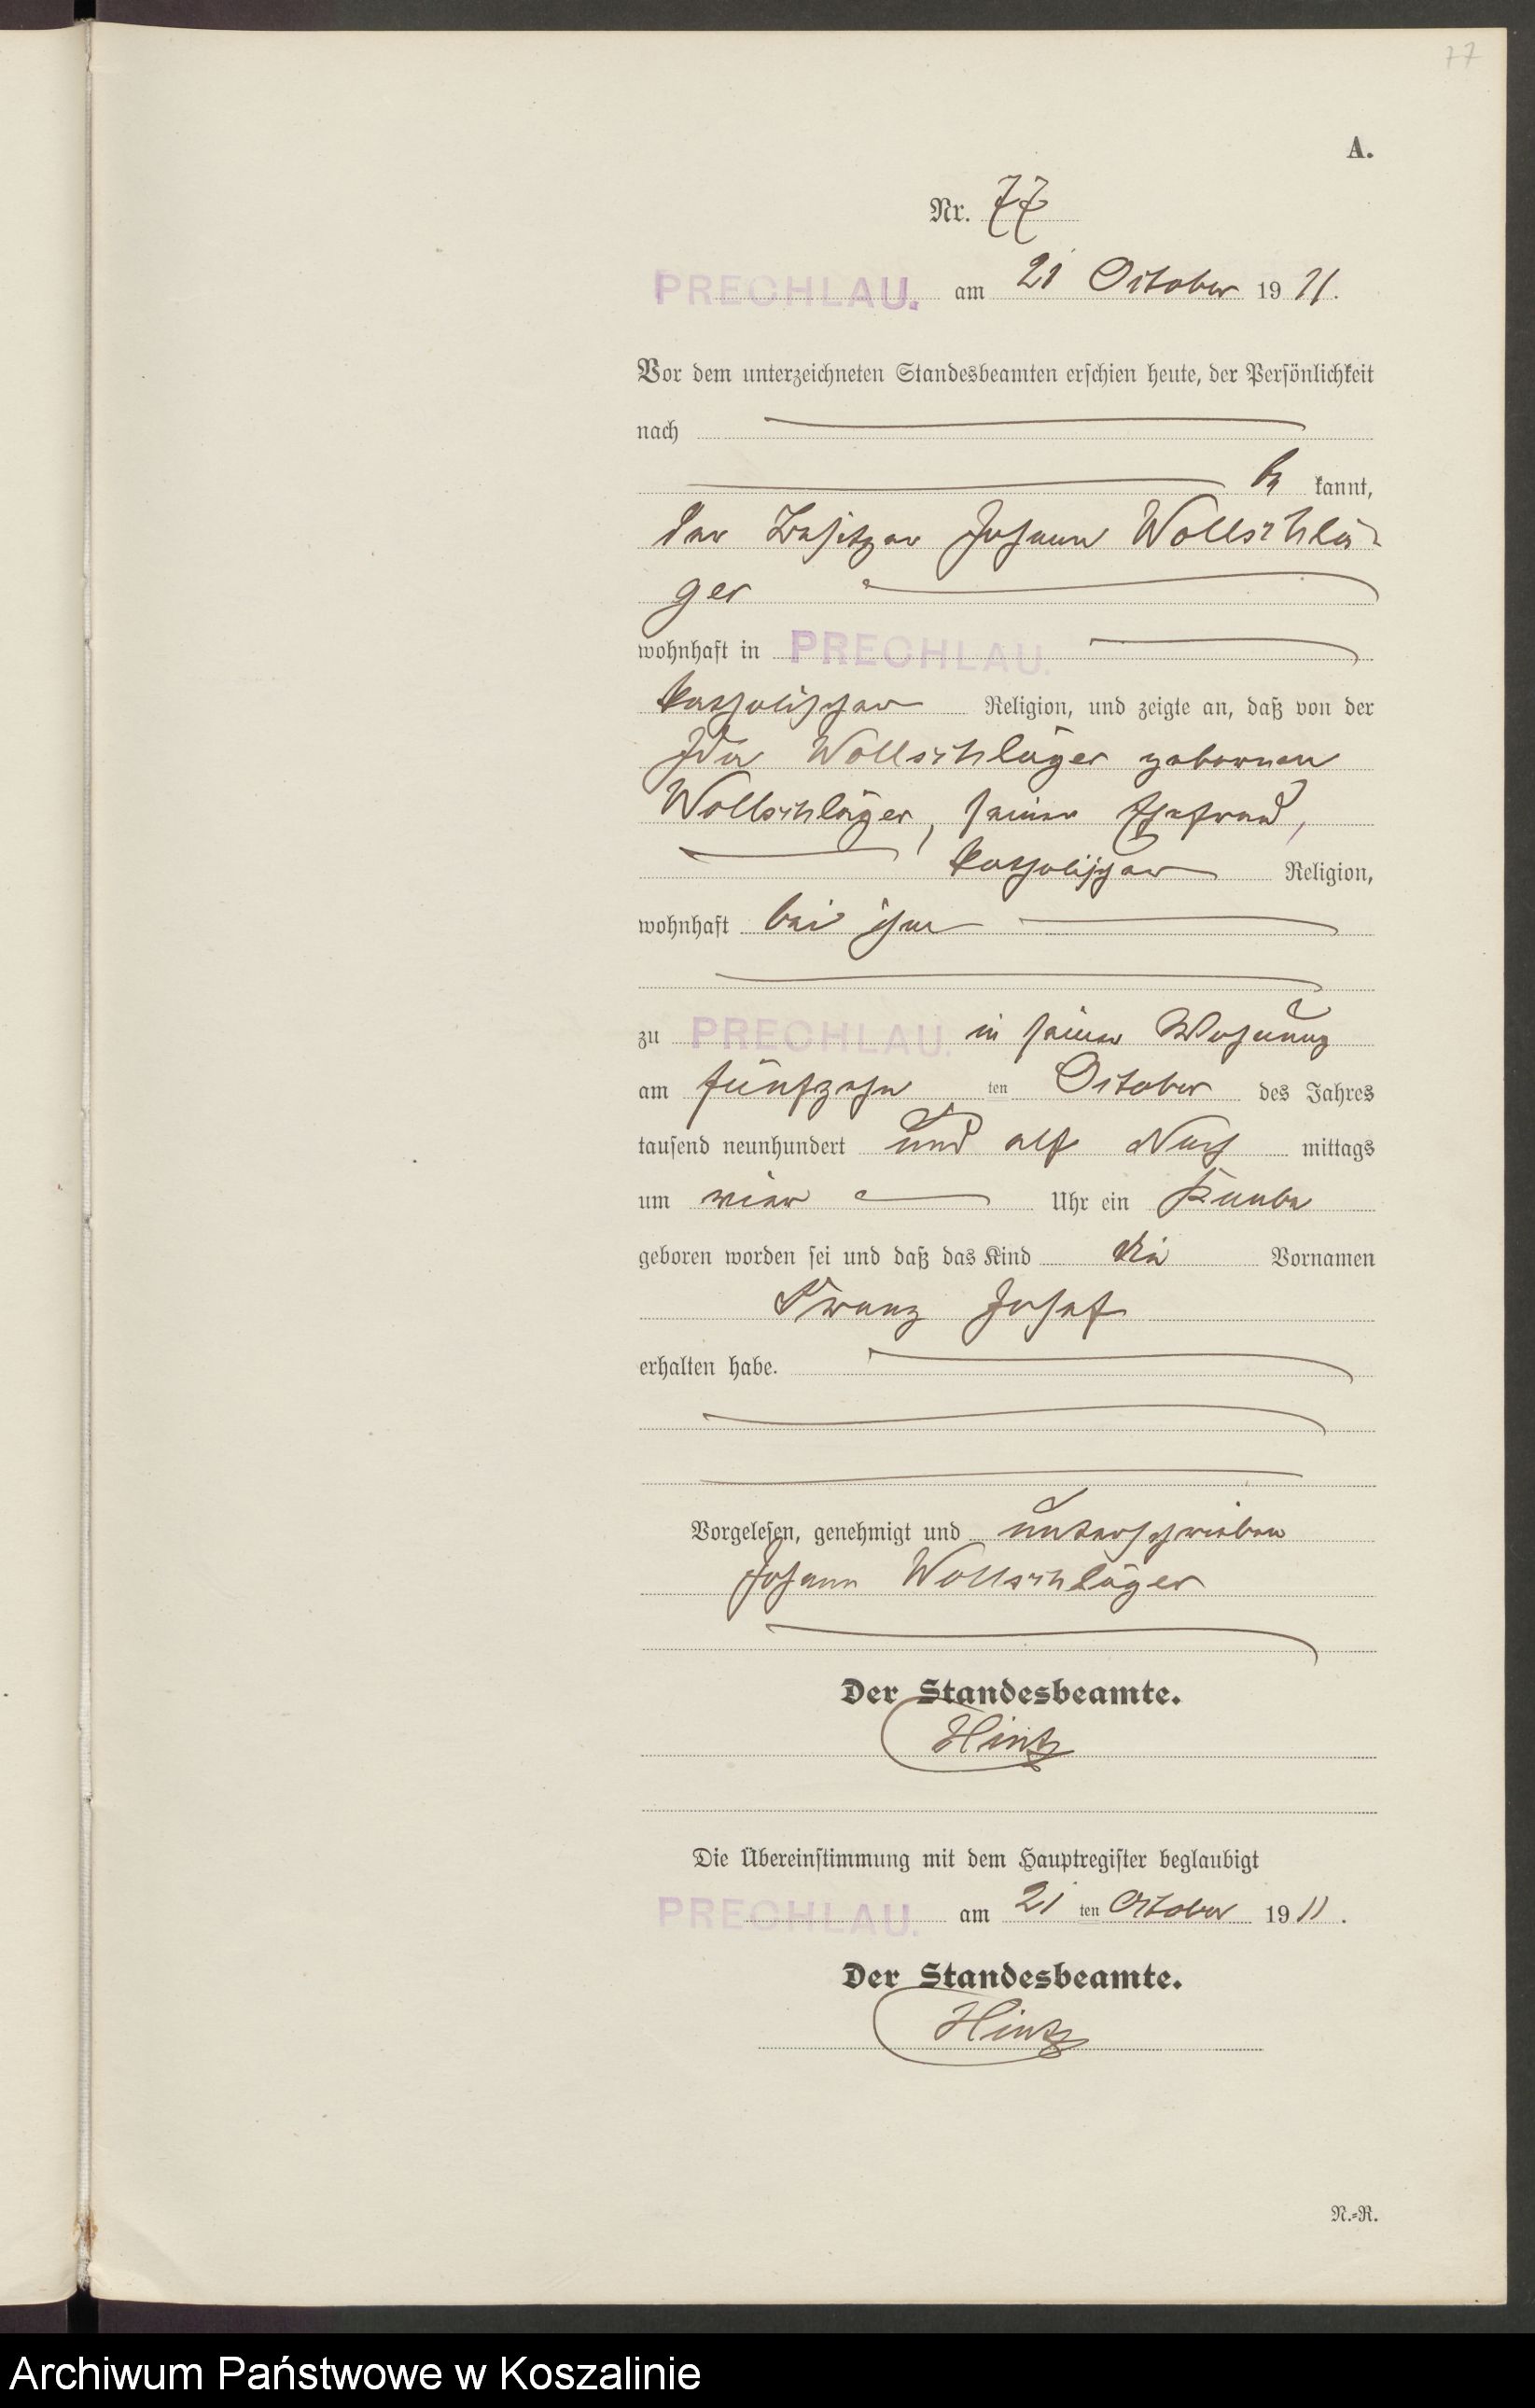 77
A.
Nr. 77
PRECHLAU. am 21 October 19 11.
Vor dem unterzeichneten Standesbeamten erschien heute, der Persönlichkeit
nach
be kannt,
der Besitzer Johann Wollschlä-
ger
wohnhaft in PRECHLAU.
katholischer Religion, und zeigte an, daß von der
Ida Wollschläger geborenen
Wollschläger, seiner Ehefrau,
katholischer Religion,
wohnhaft bei ihm
zu PRECHLAU. in seiner Wohnung
am fünfzehn ten October des Jahres
tausend neunhundert und elf Nach mittags
um vier Uhr ein Knabe
geboren worden sei und daß das Kind die Vornamen
Franz Josef
erhalten habe.
Vorgelesen, genehmigt und unterschrieben
Johann Wollschläger
Der Standesbeamte.
Hintz
Die Übereinstimmung mit dem Hauptregister beglaubigt
PRECHLAU. am 21 ten October 19 11.
Der Standesbeamte.
Hintz
N.-R.
Archiwum Państwowe w Koszalinie